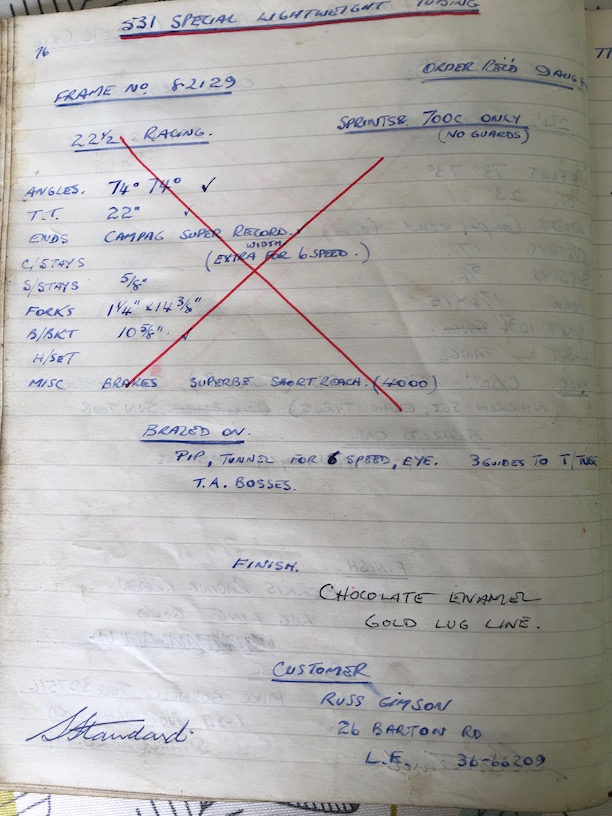 531 SPECIAL LIGHTWEIGHT TUBING
76
77
ORDER REC'D 9 AUG
FRAME NO 82129
22½ RACING.
SPRINTS & 700C ONLY
(NO GUARDS)
ANGLES. 74° 74° ✓
T.T. 22" ✓
ENDS CAMPAG SUPER RECORD.
C/STAYS (EXTRA WIDTH FOR 6 SPEED.)
S/STAYS 5/8"
FORKS 1¼" x 14 3/8"
B/BKT 10 5/8". ✓
H/SET
MISC BRAKES SUPERBE SHORT REACH. (4000)
BRAZED ON.
PIP, TUNNEL FOR 6 SPEED, EYE. 3 GUIDES TO T/TUBE
T.A. BOSSES.
FINISH.
CHOCOLATE ENAMEL
GOLD LUG LINE.
CUSTOMER
RUSS GIMSON
26 BARTON RD
L.E. 36-66209
Standard.